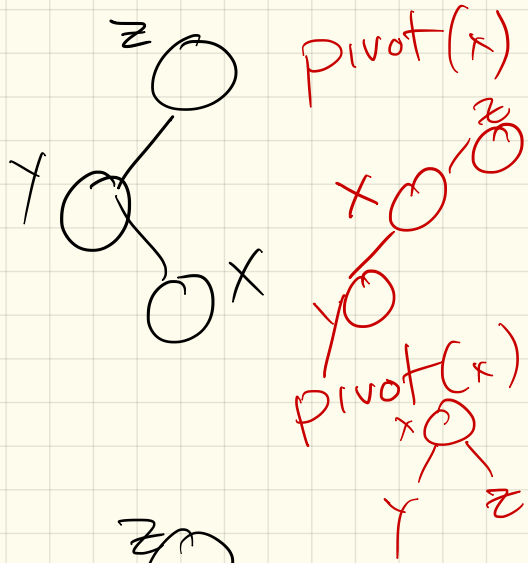 Z
Y
X
pivot(x)
Z
X
Y
pivot(x)
x
Y
Z
Z